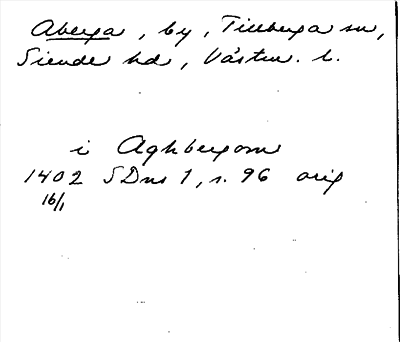 Aberga, by, Tillberga sn,
Siende hd, Västm. l.
i Aghbergom
1402 SDns 1, s. 96 orig
16/1